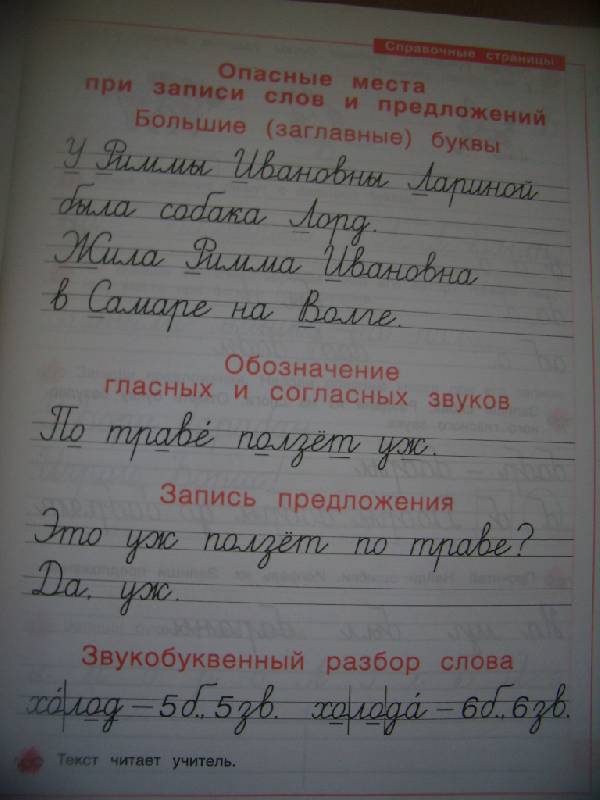 Справочные страницы
Опасные места
при записи слов и предложений
Большие (заглавные) буквы
У Риммы Ивановны Лариной
была собака Лорд.
Жила Римма Ивановна
в Самаре на Волге.
Обозначение
гласных и согласных звуков
По траве́ ползёт уж.
Запись предложения
Это уж ползёт по траве?
Да, уж.
Звукобуквенный разбор слова
хо́|лод – 5 б., 5 зв. хо|ло|да́ – 6 б., 6 зв.
Текст читает учитель.